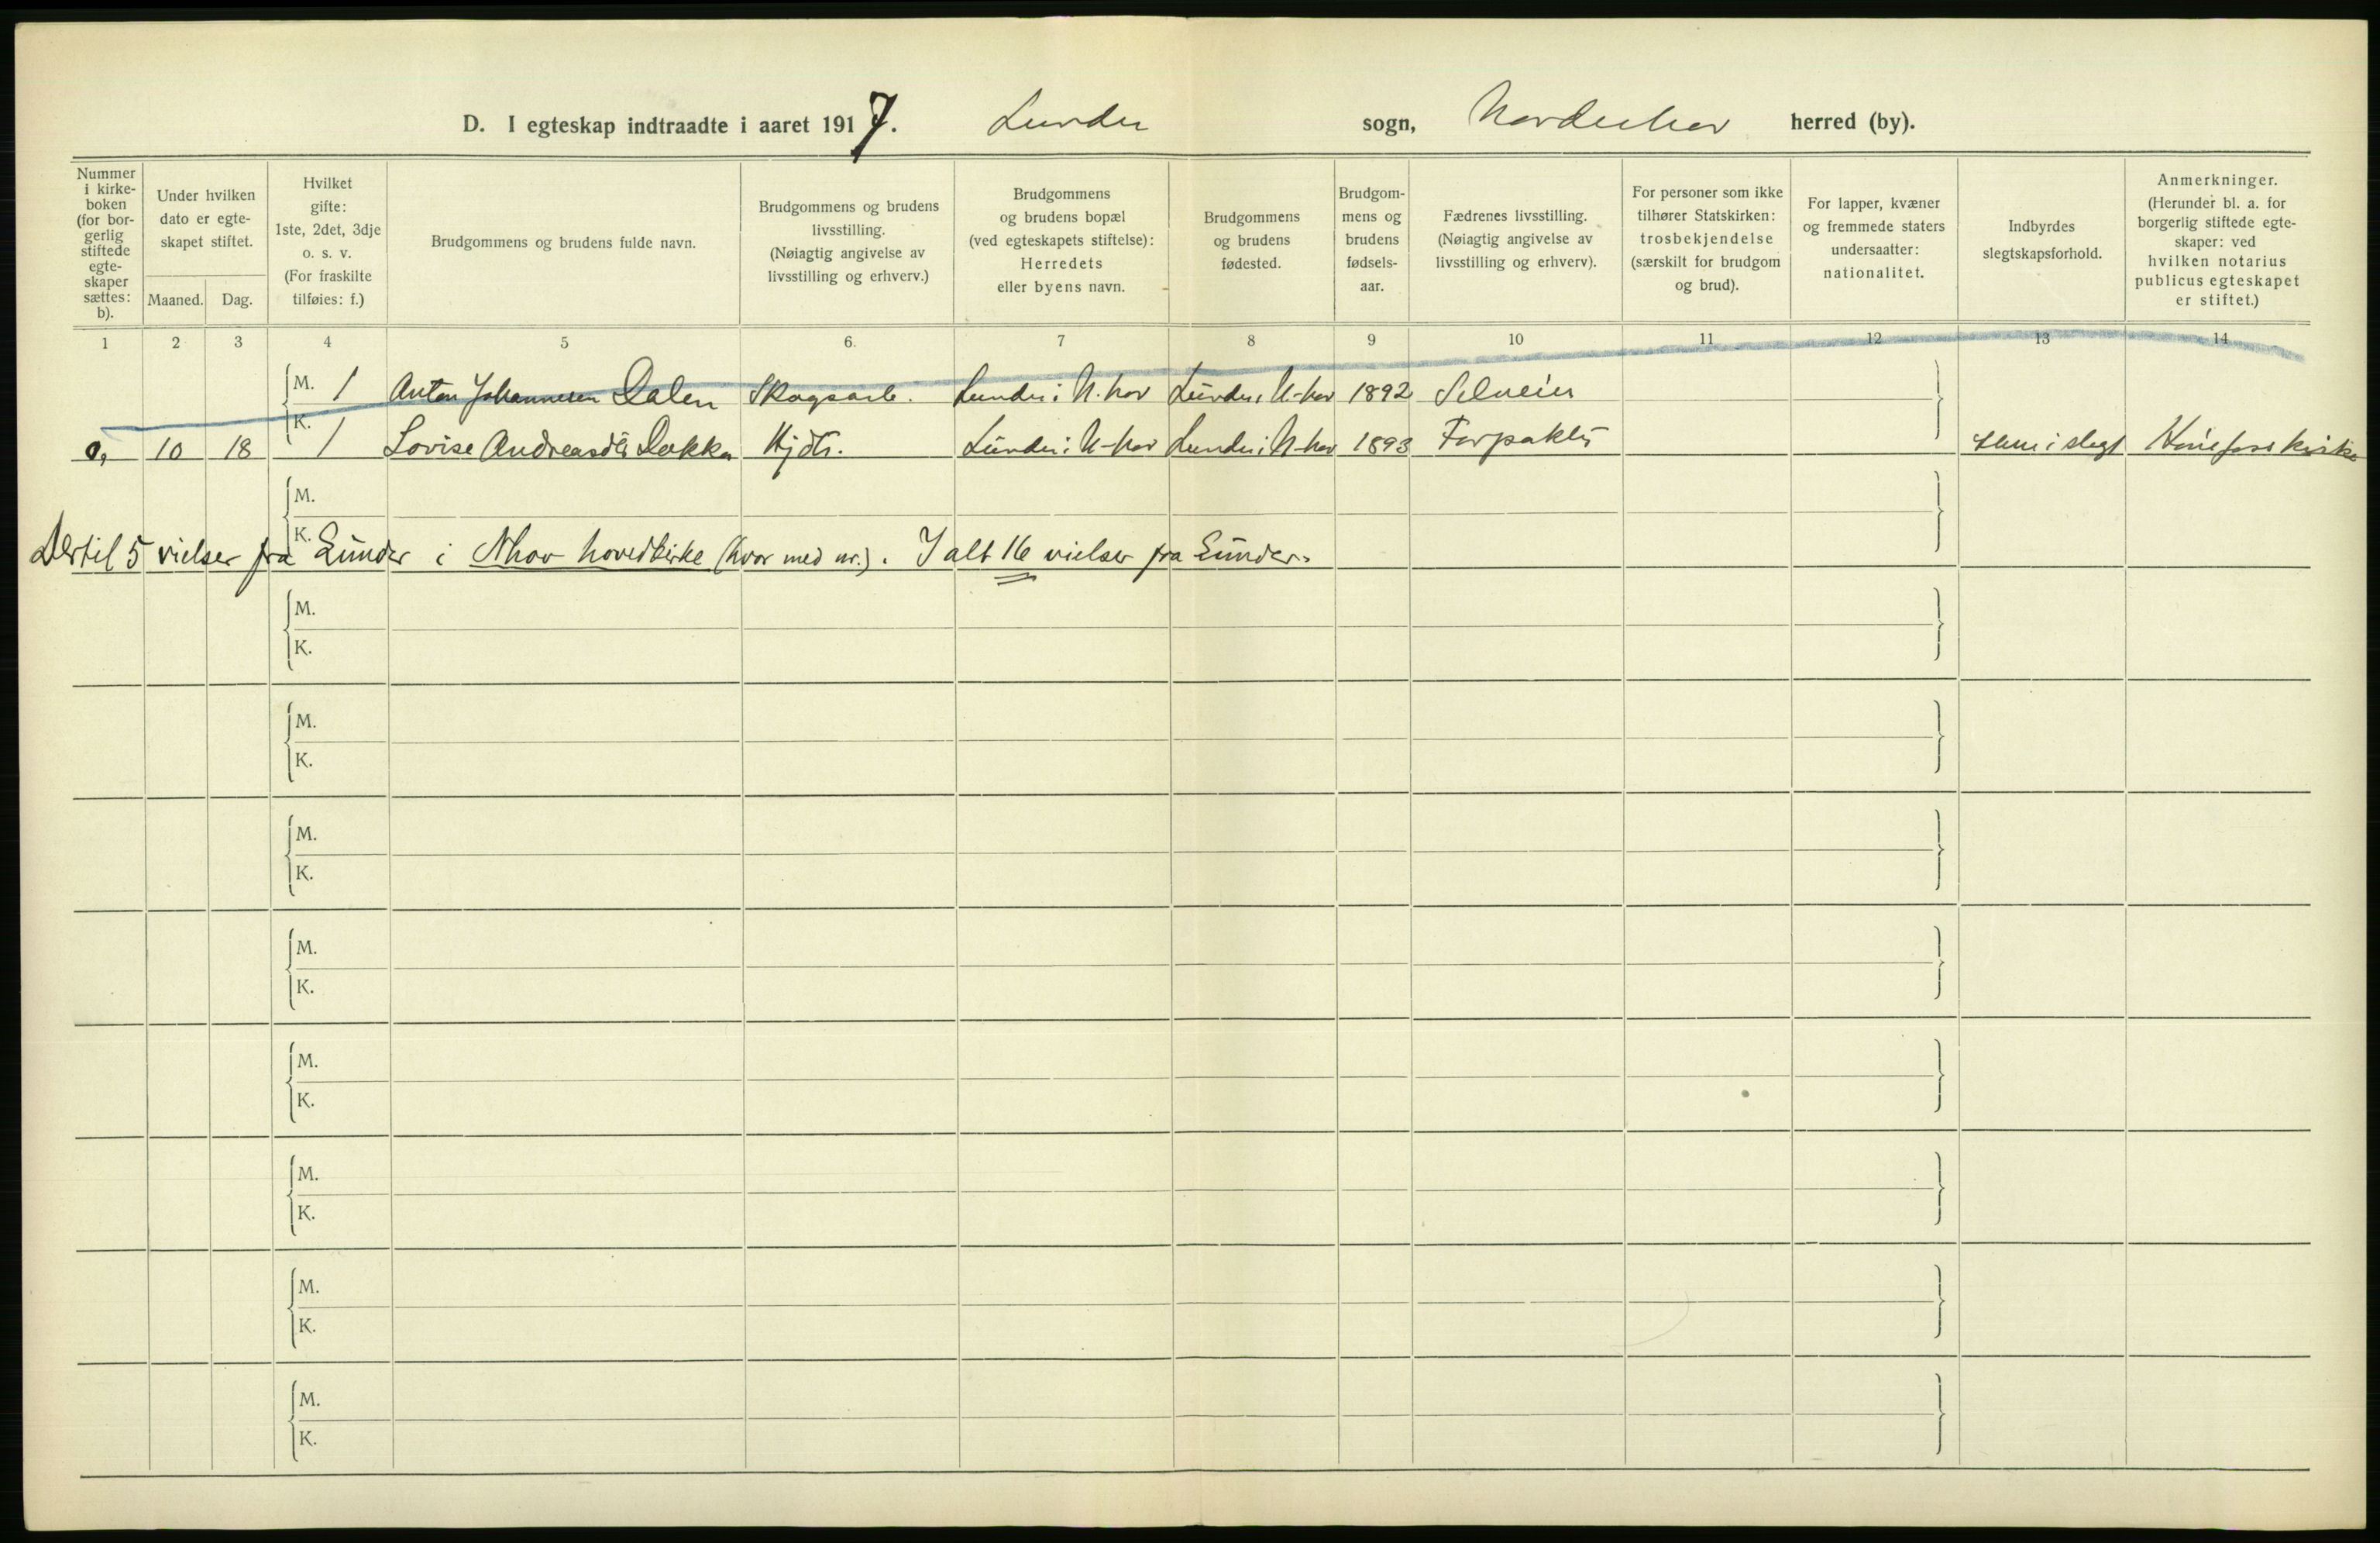 D. I egteskap indtraadte i aaret 1917. Lunder sogn, Norderhov herred (by).
Nummer i kirke-boken (for bor-gerlig stiftede egte-skaper sættes: b).
Under hvilken dato er egte-skapet stiftet.
Maaned. Dag.
Hvilket gifte: 1ste, 2det, 3dje o. s. v. (For fraskilte tilføies: f.)
Brudgommens og brudens fulde navn.
Brudgommens og brudens livsstilling. (Nøiagtig angivelse av livsstilling og erhverv.)
Brudgommens og brudens bopæl (ved egteskapets stiftelse): Herredets eller byens navn.
Brudgommens og brudens fødested.
Brudgom-mens og brudens fødsels-aar.
Fædrenes livsstilling. (Nøiagtig angivelse av livsstilling og erhverv).
For personer som ikke tilhører Statskirken: trosbekjendelse (særskilt for brudgom og brud).
For lapper, kvæner og fremmede staters undersaatter: nationalitet.
Indbyrdes slegtskapsforhold.
Anmerkninger. (Herunder bl. a. for borgerlig stiftede egte-skaper: ved hvilken notarius publicus egteskapet er stiftet.)
1 2 3 4 5 6. 7 8 9 10 11 12 13 14
M. 1 Anton Johannesen Dalen Skogsarb. Lunder i N. hov Lunder i N-hov 1892 Selveier
0, 10 18 K. 1 Lovise Andreasdtr Dokka Hjdtr. Lunder i N-hov Lunder i N-hov 1893 Forpakter i slegt Hønefoss kirke
M.
K.
Dertil 5 vielser fra Lunder i Nhov hovedkirke (hvor med nr.). I alt 16 vielser fra Lunder.
M.
K.
M.
K.
M.
K.
M.
K.
M.
K.
M.
K.
M.
K.
M.
K.